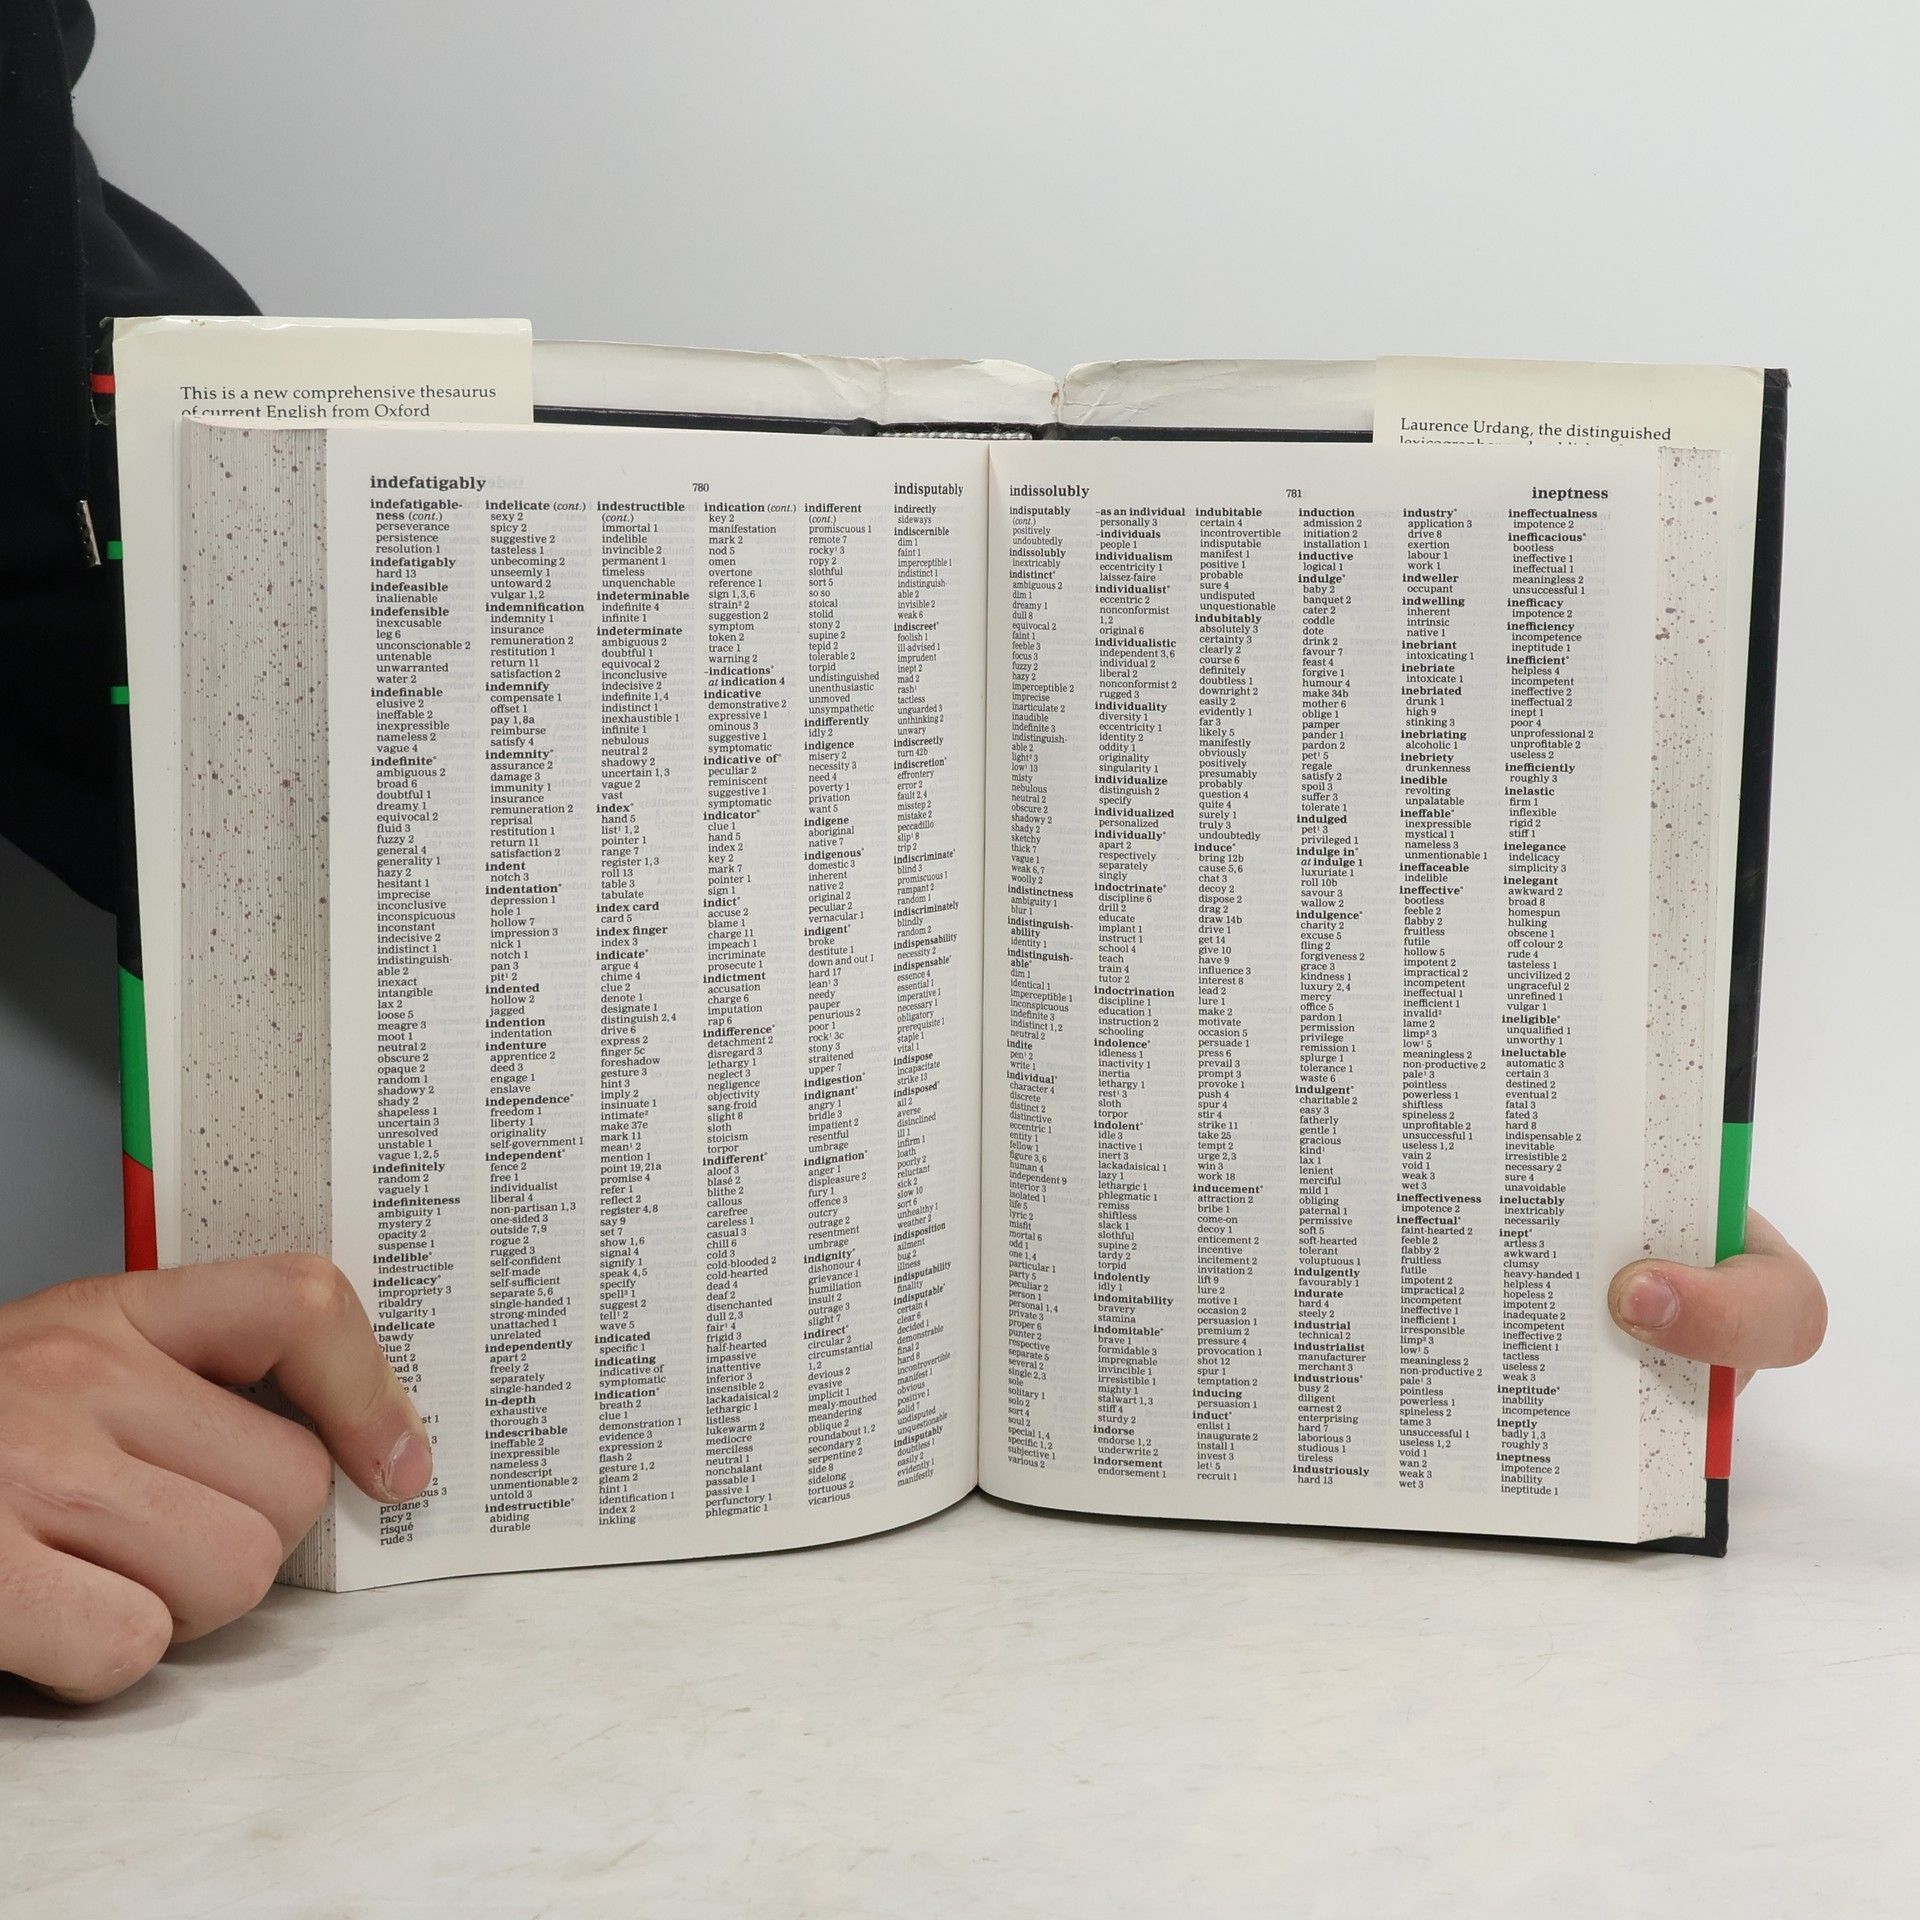 This is a new comprehensive thesaurus
of current English from Oxford
Laurence Urdang, the distinguished
indefatigably
780
indisputably
indefatigable-
ness (cont.)
perseverance
persistence
resolution 1
indefatigably
hard 13
indefeasible
inalienable
indefensible
inexcusable
leg 6
unconscionable 2
untenable
unwarranted
water 2
indefinable
elusive 2
ineffable 2
inexpressible
nameless 2
vague 4
indefinite*
ambiguous 2
broad 6
doubtful 1
dreamy 1
equivocal 2
fluid 3
fuzzy 2
general 4
generality 1
hazy 2
hesitant 1
imprecise
inconclusive
inconspicuous
inconstant
indecisive 2
indistinct 1
indistinguish-
able 2
inexact
intangible
lax 2
loose 5
meagre 3
moot 1
neutral 2
obscure 2
opaque 2
random 1
shadowy 2
shady 2
shapeless 1
uncertain 3
unresolved
unstable 1
vague 1,2,5
indefinitely
random 2
vaguely 1
indefiniteness
ambiguity 1
mystery 2
opacity 2
suspense 1
indelible*
indestructible
indelicacy*
impropriety 3
ribaldry
vulgarity 1
indelicate
bawdy
profane 3
racy 2
risqué
rude 3
indelicate (cont.)
sexy 2
spicy 2
suggestive 2
tasteless 1
unbecoming 2
unseemly 1
untoward 2
vulgar 1,2
indemnification
indemnity 1
insurance
remuneration 2
restitution 1
return 11
satisfaction 2
indemnify
compensate 1
offset 1
pay 1,8a
reimburse
satisfy 4
indemnity*
assurance 2
damage 3
immunity 1
insurance
remuneration 2
reprisal
restitution 1
return 11
satisfaction 2
indent
notch 3
indentation*
depression 1
hole 1
hollow 7
impression 3
nick 1
notch 1
pan 3
pit¹ 2
indented
hollow 2
jagged
indention
indentation
indenture
apprentice 2
deed 3
engage 1
enslave
independence*
freedom 1
liberty 1
originality
self-government 1
independent*
fence 2
free 1
individualist
liberal 4
non-partisan 1,3
one-sided 3
outside 7,9
rogue 2
rugged 3
self-confident
self-made
self-sufficient
separate 5,6
single-handed 1
strong-minded
unattached 1
unrelated
independently
apart 2
freely 2
separately
single-handed 2
in-depth
exhaustive
thorough 3
indescribable
ineffable 2
inexpressible
nameless 3
nondescript
unmentionable 2
untold 3
indestructible*
abiding
durable
indestructible
(cont.)
immortal 1
indelible
invincible 2
permanent 1
timeless
unquenchable
indeterminable
indefinite 4
infinite 1
indeterminate
ambiguous 2
doubtful 1
equivocal 2
inconclusive
indecisive 2
indefinite 1,4
indistinct 1
inexhaustible 1
infinite 1
nebulous
neutral 2
shadowy 2
uncertain 1,3
vague 2
vast
index*
hand 5
list¹ 1,2
pointer 1
range 7
register 1,3
roll 13
table 3
tabulate
index card
card 5
index finger
index 3
indicate*
argue 4
chime 4
clue 2
denote 1
designate 1
distinguish 2,4
drive 6
express 2
finger 5c
foreshadow
gesture 3
hint 3
imply 2
insinuate 1
intimate²
make 37e
mark 11
mean¹ 2
mention 1
point 19,21a
promise 4
refer 1
reflect 2
register 4,8
say 9
set 7
show 1,6
signal 4
signify 1
speak 4,5
specify
spell³ 1
suggest 2
tell¹ 2
wave 5
indicated
specific 1
indicating
indicative of
symptomatic
indication*
breath 2
clue 1
demonstration 1
evidence 3
expression 2
flash 2
gesture 1,2
gleam 2
hint 1
identification 1
index 2
inkling
indication (cont.)
key 2
manifestation
mark 2
nod 5
omen
overtone
reference 1
sign 1,3,6
strain² 2
suggestion 2
symptom
token 2
trace 1
warning 2
-indications*
at indication 4
indicative
demonstrative 2
expressive 1
ominous 3
suggestive 1
symptomatic
indicative of*
peculiar 2
reminiscent
suggestive 1
symptomatic
indicator*
clue 1
hand 5
index 2
key 2
mark 7
pointer 1
sign 1
indict*
accuse 2
blame 1
charge 11
impeach 1
incriminate
prosecute 1
indictment
accusation
charge 6
imputation
rap 6
indifference*
detachment 2
disregard 3
lethargy 1
neglect 3
negligence
objectivity
sang-froid
slight 8
sloth
stoicism
torpor
indifferent*
aloof 3
blasé 2
blithe 2
callous
carefree
careless 1
casual 3
chill 6
cold 3
cold-blooded 2
cold-hearted
dead 4
deaf 2
disenchanted
dull 2,3
fair¹ 4
frigid 3
half-hearted
impassive
inattentive
inferior 3
insensible 2
lackadaisical 2
lethargic 1
listless
lukewarm 2
mediocre
merciless
neutral 1
nonchalant
passable 1
passive 1
perfunctory 1
phlegmatic 1
indifferent
(cont.)
promiscuous 1
remote 7
rocky¹ 3
ropy 2
slothful
sort 5
so so
stoical
stolid
stony 2
supine 2
tepid 2
tolerable 2
torpid
undistinguished
unenthusiastic
unmoved
unsympathetic
indifferently
idly 2
indigence
misery 2
necessity 3
need 4
poverty 1
privation
want 5
indigene
aboriginal
native 7
indigenous*
domestic 3
inherent
native 2
original 2
peculiar 2
vernacular 1
indigent*
broke
destitute 1
down and out 1
hard 17
lean¹ 3
needy
pauper
penurious 2
poor 1
rock¹ 3c
stony 3
straitened
upper 7
indigestion*
indignant*
angry 1
bridle 3
impatient 2
resentful
umbrage
indignation*
anger 1
displeasure 2
fury 1
offence 3
outcry
outrage 2
resentment
umbrage
indignity*
dishonour 4
grievance 1
humiliation
insult 2
outrage 3
slight 7
indirect*
circular 2
circumstantial
1,2
devious 2
evasive
implicit 1
mealy-mouthed
meandering
oblique 2
roundabout 1,2
secondary 2
serpentine 2
side 8
sidelong
tortuous 2
vicarious
indirectly
sideways
indiscernible
dim 1
faint 1
imperceptible 1
indistinct 1
indistinguish-
able 2
invisible 2
weak 6
indiscreet*
foolish 1
ill-advised 1
imprudent
inept 2
mad 2
rash¹
tactless
unguarded 3
unthinking 2
unwary
indiscreetly
turn 42b
indiscretion*
effrontery
error 2
fault 2,4
misstep 2
mistake 2
peccadillo
slip¹ 8
trip 2
indiscriminate*
blind 3
promiscuous 1
rampant 2
random 1
indiscriminately
blindly
random 2
indispensability
necessity 2
indispensable*
essence 4
essential 1
imperative 1
necessary 1
obligatory
prerequisite 1
staple 1
vital 1
indispose
incapacitate
strike 13
indisposed*
ail 2
averse
disinclined
ill 1
infirm 1
loath
poorly 2
reluctant
sick 2
slow 10
sort 6
unhealthy 1
weather 2
indisposition
ailment
bug 2
illness
indisputability
finality
indisputable*
certain 4
clear 6
decided 1
demonstrable
final 2
hard 8
incontrovertible
manifest 1
obvious
positive 1
solid 7
undisputed
unquestionable
indisputably
doubtless 1
easily 2
evidently 1
manifestly
indissolubly
781
ineptness
indisputably
(cont.)
positively
undoubtedly
indissolubly
inextricably
indistinct*
ambiguous 2
dim 1
dreamy 1
dull 8
equivocal 2
faint 1
feeble 3
focus 3
fuzzy 2
hazy 2
imperceptible 2
imprecise
inarticulate 2
inaudible
indefinite 3
indistinguish-
able 2
light² 3
low¹ 13
misty
nebulous
neutral 2
obscure 2
shadowy 2
shady 2
sketchy
thick 7
vague 1
weak 6,7
woolly 2
indistinctness
ambiguity 1
blur 1
indistinguish-
ability
identity 1
indistinguish-
able*
dim 1
identical 1
imperceptible 1
inconspicuous
indefinite 3
indistinct 1,2
neutral 2
indite
pen¹ 2
write 1
individual*
character 4
discrete
distinct 2
distinctive
eccentric 1
entity 1
fellow 1
figure 3,6
human 4
independent 9
interior 3
isolated 1
life 5
lyric 2
misfit
mortal 6
odd 1
one 1,4
particular 1
party 5
peculiar 2
person 1
personal 1,4
private 3
proper 6
punter 2
respective
separate 5
several 2
single 2,3
sole
solitary 1
solo 2
sort 4
soul 2
special 1,4
specific 1,2
subjective 1
various 2
-as an individual
personally 3
-individuals
people 1
individualism
eccentricity 1
laissez-faire
individualist*
eccentric 2
nonconformist
1,2
original 6
individualistic
independent 3,6
individual 2
liberal 2
nonconformist 2
rugged 3
individuality
diversity 1
eccentricity 1
identity 2
oddity 1
originality
singularity 1
individualize
distinguish 2
specify
individualized
personalized
individually*
apart 2
respectively
separately
singly
indoctrinate*
discipline 6
drill 2
educate
implant 1
instruct 1
school 4
teach
train 4
tutor 2
indoctrination
discipline 1
education 1
instruction 2
schooling
indolence*
idleness 1
inactivity 1
inertia
lethargy 1
rest¹ 3
sloth
torpor
indolent*
idle 3
inactive 1
inert 3
lackadaisical 1
lazy 1
lethargic 1
phlegmatic 1
remiss
shiftless
slack 1
slothful
supine 2
tardy 2
torpid
indolently
idly 1
indomitability
bravery
stamina
indomitable*
brave 1
formidable 3
impregnable
invincible 1
irresistible 1
mighty 1
stalwart 1,3
stiff 4
sturdy 2
indorse
endorse 1,2
underwrite 2
indorsement
endorsement 1
indubitable
certain 4
incontrovertible
indisputable
manifest 1
positive 1
probable
sure 4
undisputed
unquestionable
indubitably
absolutely 3
certainty 3
clearly 2
course 6
definitely
doubtless 1
downright 2
easily 2
evidently 1
far 3
likely 5
manifestly
obviously
positively
presumably
probably
question 4
quite 4
surely 1
truly 3
undoubtedly
induce*
bring 12b
cause 5,6
chat 3
decoy 2
dispose 2
drag 2
draw 14b
drive 1
get 14
give 10
have 9
influence 3
interest 8
lead 2
lure 1
make 2
motivate
occasion 5
persuade 1
press 6
prevail 3
prompt 3
provoke 1
push 4
spur 4
stir 4
strike 11
take 25
tempt 2
urge 2,3
win 3
work 18
inducement*
attraction 2
bribe 1
come-on
decoy 1
enticement 2
incentive
incitement 2
invitation 2
lift 9
lure 2
motive 1
occasion 2
persuasion 1
premium 2
pressure 4
provocation 1
shot 12
spur 1
temptation 2
inducing
persuasion 1
induct*
enlist 1
inaugurate 2
install 1
invest 3
let¹ 5
recruit 1
induction
admission 2
initiation 2
installation 1
inductive
logical 1
indulge*
baby 2
banquet 2
cater 2
coddle
dote
drink 2
favour 7
feast 4
forgive 1
humour 4
make 34b
mother 6
oblige 1
pamper
pander 1
pardon 2
pet¹ 5
regale
satisfy 2
spoil 3
suffer 3
tolerate 1
indulged
pet¹ 3
privileged 1
indulge in*
at indulge 1
luxuriate 1
roll 10b
savour 3
wallow 2
indulgence*
charity 2
excuse 5
fling 2
forgiveness 2
grace 3
kindness 1
luxury 2,4
mercy
office 5
pardon 1
permission
privilege
remission 1
splurge 1
tolerance 1
waste 6
indulgent*
charitable 2
easy 3
fatherly
gentle 1
gracious
kind¹
lax 1
lenient
merciful
mild 1
obliging
paternal 1
permissive
soft 5
soft-hearted
tolerant
voluptuous 1
indulgently
favourably 1
indurate
hard 4
steely 2
industrial
technical 2
industrialist
manufacturer
merchant 3
industrious*
busy 2
diligent
earnest 2
enterprising
hard 7
laborious 3
studious 1
tireless
industriously
hard 13
industry*
application 3
drive 8
exertion
labour 1
work 1
indweller
occupant
indwelling
inherent
intrinsic
native 1
inebriant
intoxicating 1
inebriate
intoxicate 1
inebriated
drunk 1
high 9
stinking 3
inebriating
alcoholic 1
inebriety
drunkenness
inedible
revolting
unpalatable
ineffable*
inexpressible
mystical 1
nameless 3
unmentionable 1
ineffaceable
indelible
ineffective*
bootless
feeble 2
flabby 2
fruitless
futile
hollow 5
impotent 2
impractical 2
incompetent
ineffectual 1
inefficient 1
invalid²
lame 2
limp² 3
low¹ 5
meaningless 2
non-productive 2
pale¹ 3
pointless
powerless 1
shiftless
spineless 2
unprofitable 2
unsuccessful 1
useless 1,2
vain 2
void 1
weak 3
wet 3
ineffectiveness
impotence 2
ineffectual*
faint-hearted 2
feeble 2
flabby 2
fruitless
futile
impotent 2
impractical 2
incompetent
ineffective 1
inefficient 1
irresponsible
limp² 3
low¹ 5
meaningless 2
non-productive 2
pale¹ 3
pointless
powerless 1
spineless 2
tame 3
unsuccessful 1
useless 1,2
void 1
wan 2
weak 3
wet 3
ineffectualness
impotence 2
inefficacious*
bootless
ineffective 1
ineffectual 1
meaningless 2
unsuccessful 1
inefficacy
impotence 2
inefficiency
incompetence
ineptitude 1
inefficient*
helpless 4
incompetent
ineffective 2
ineffectual 2
inept 1
poor 4
unprofessional 2
unprofitable 2
useless 2
inefficiently
roughly 3
inelastic
firm 1
inflexible
rigid 2
stiff 1
inelegance
indelicacy
simplicity 3
inelegant
awkward 2
broad 8
homespun
hulking
obscene 1
off colour 2
rude 4
tasteless 1
uncivilized 2
ungraceful 2
unrefined 1
vulgar 1
ineligible*
unqualified 1
unworthy 1
ineluctable
automatic 3
certain 3
destined 2
eventual 2
fatal 3
fated 3
hard 8
indispensable 2
inevitable
irresistible 2
necessary 2
sure 4
unavoidable
ineluctably
inextricably
necessarily
inept*
artless 3
awkward 1
clumsy
heavy-handed 1
helpless 4
hopeless 2
impotent 2
inadequate 2
incompetent
ineffective 2
inefficient 1
tactless
useless 2
weak 3
ineptitude*
inability
incompetence
ineptly
badly 1,3
roughly 3
ineptness
impotence 2
inability
ineptitude 1